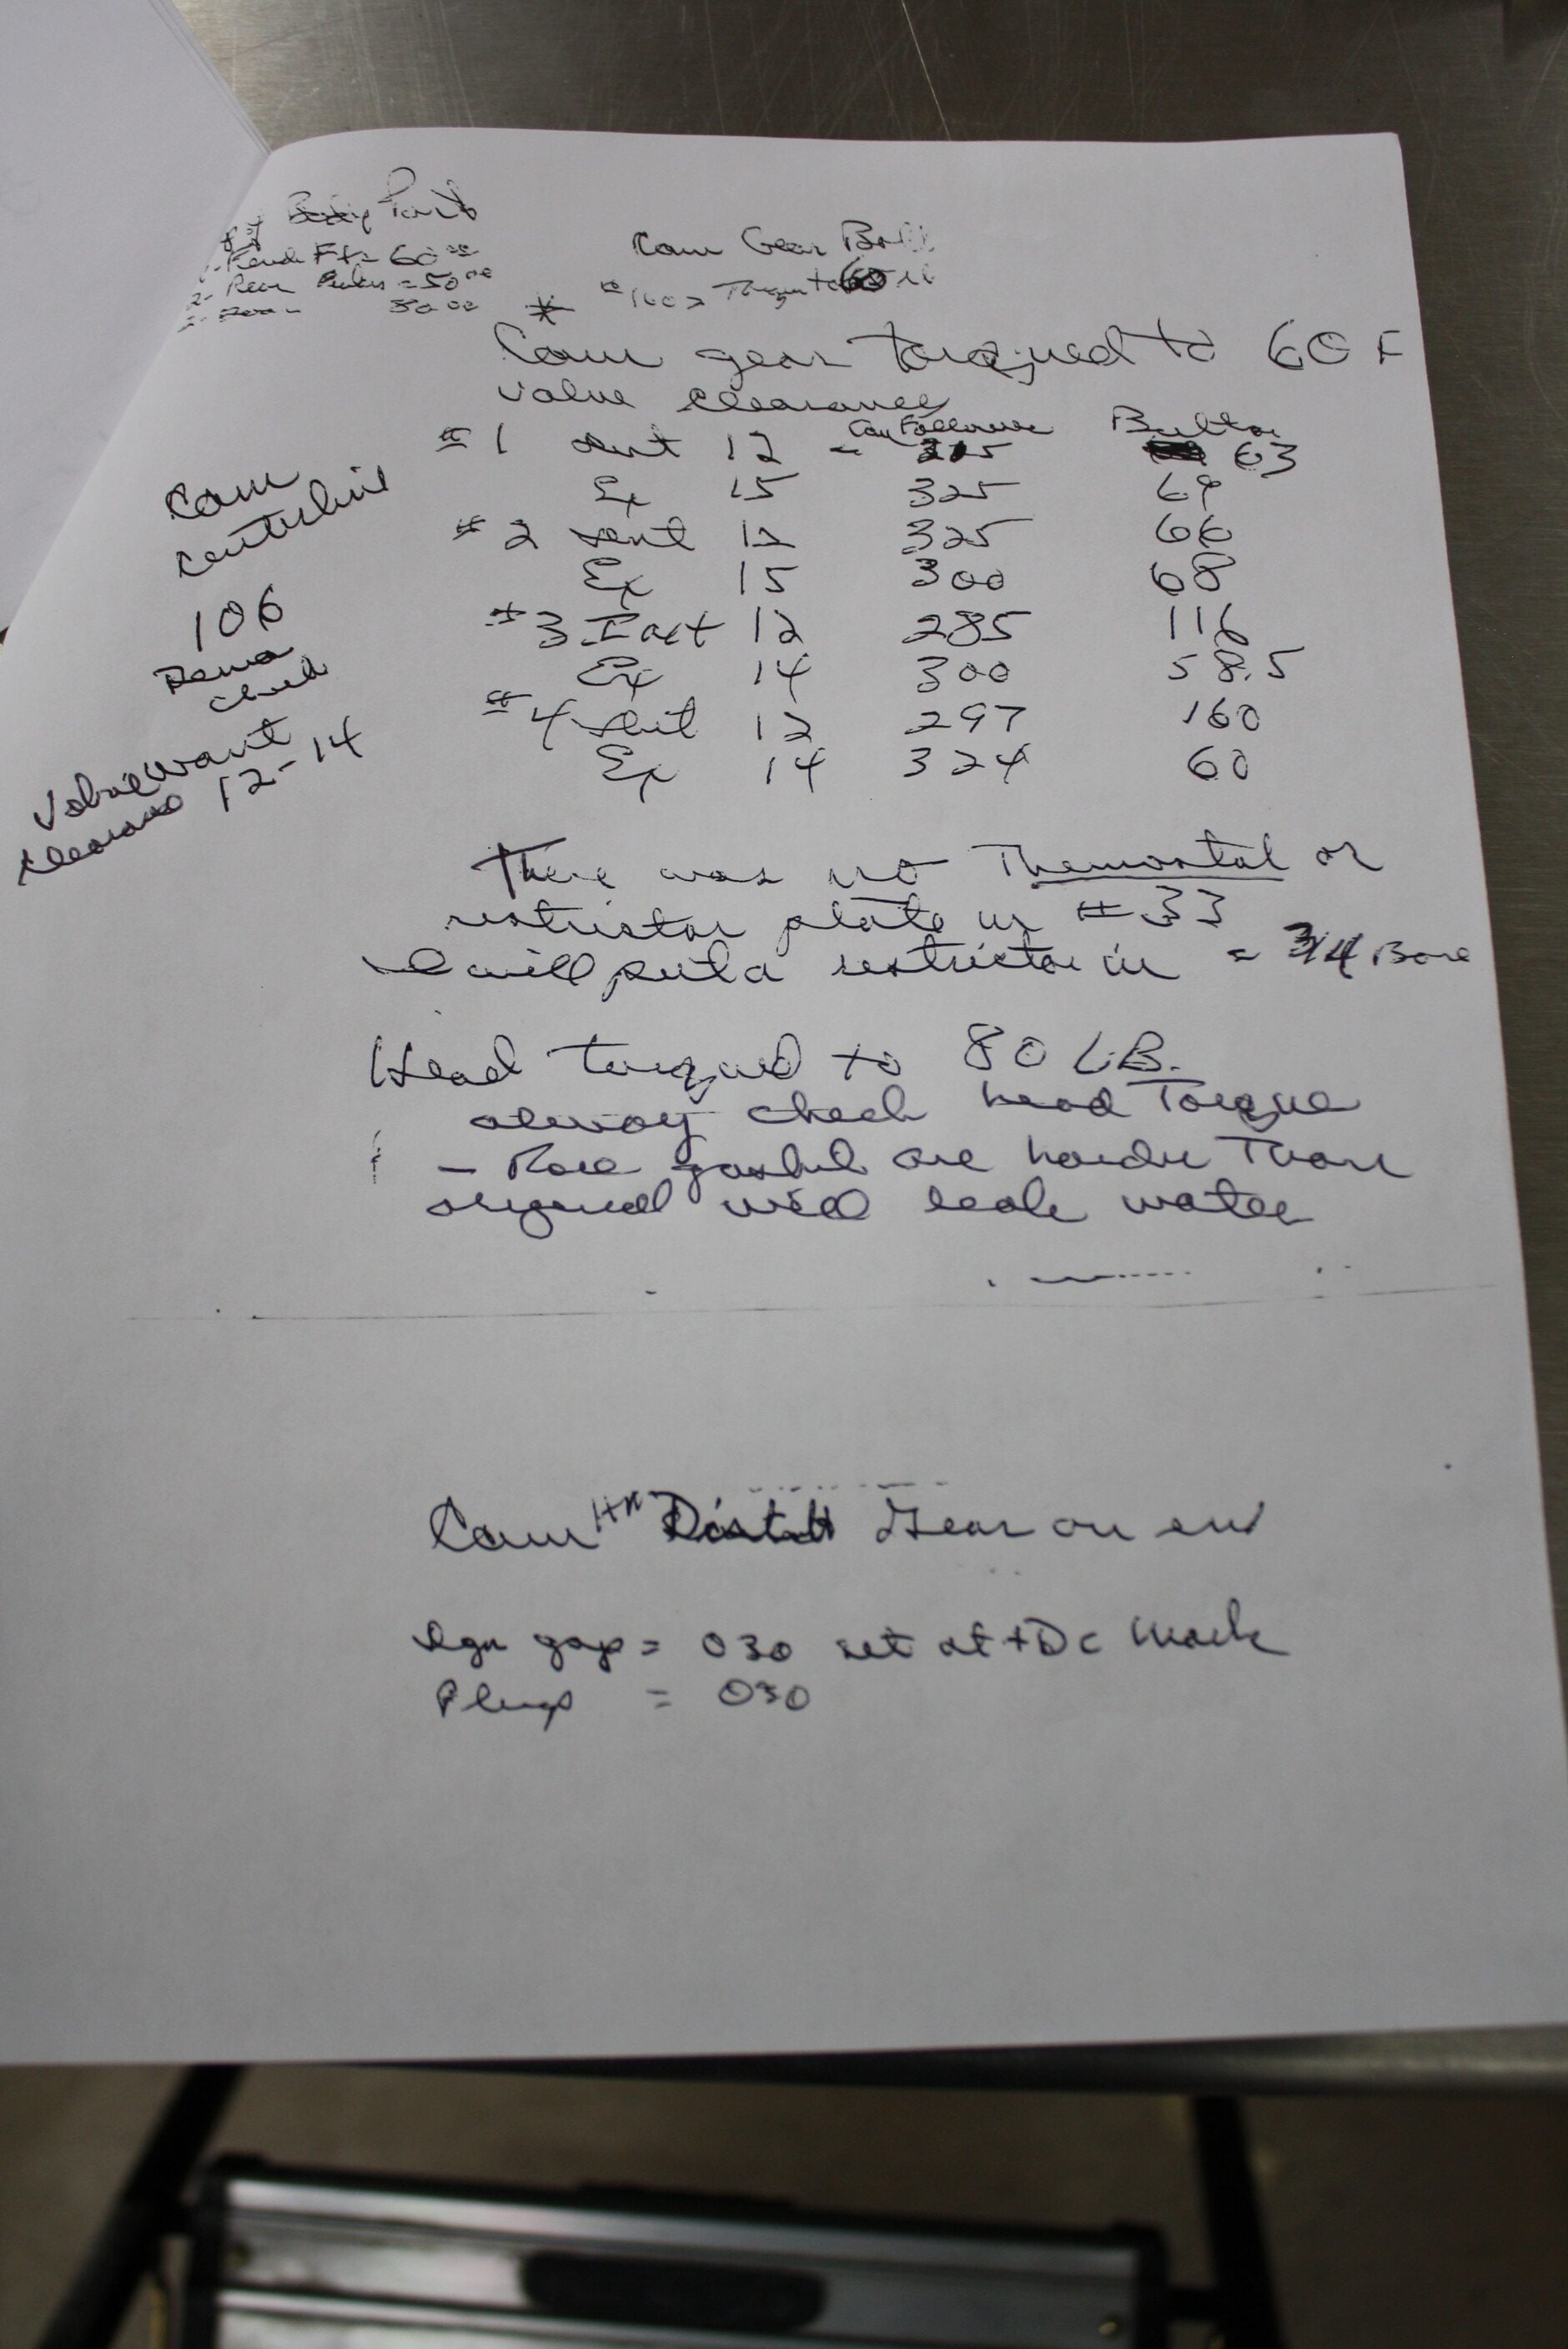 Body Parts
Ft = 60 00
2- Rear = 50 00
30 00
Cam Gear Bolt
* Torque to 60 lb
Cam gear torqued to 60 F
Valve clearance
Cam Follower Button
#1 Int 12 - 63
Ex 15 325 69
#2 Int 12 325 66
Ex 15 300 68
#3 Int 12 285 116
Ex 14 300 58.5
#4 Int 12 297 160
Ex 14 324 60
Cam
centerline
106
check
Valve want
clearance 12-14
There was no Themostat or
restrictor plate in #33
I will put a restrictor in = 3/4 Bore
Head torqued to 80 LB.
alway check head Torque
- gasket are harder Than
original will leak water
Cam Gear on end
Ign gap = 030 set at TDC Mark
Plugs = 030